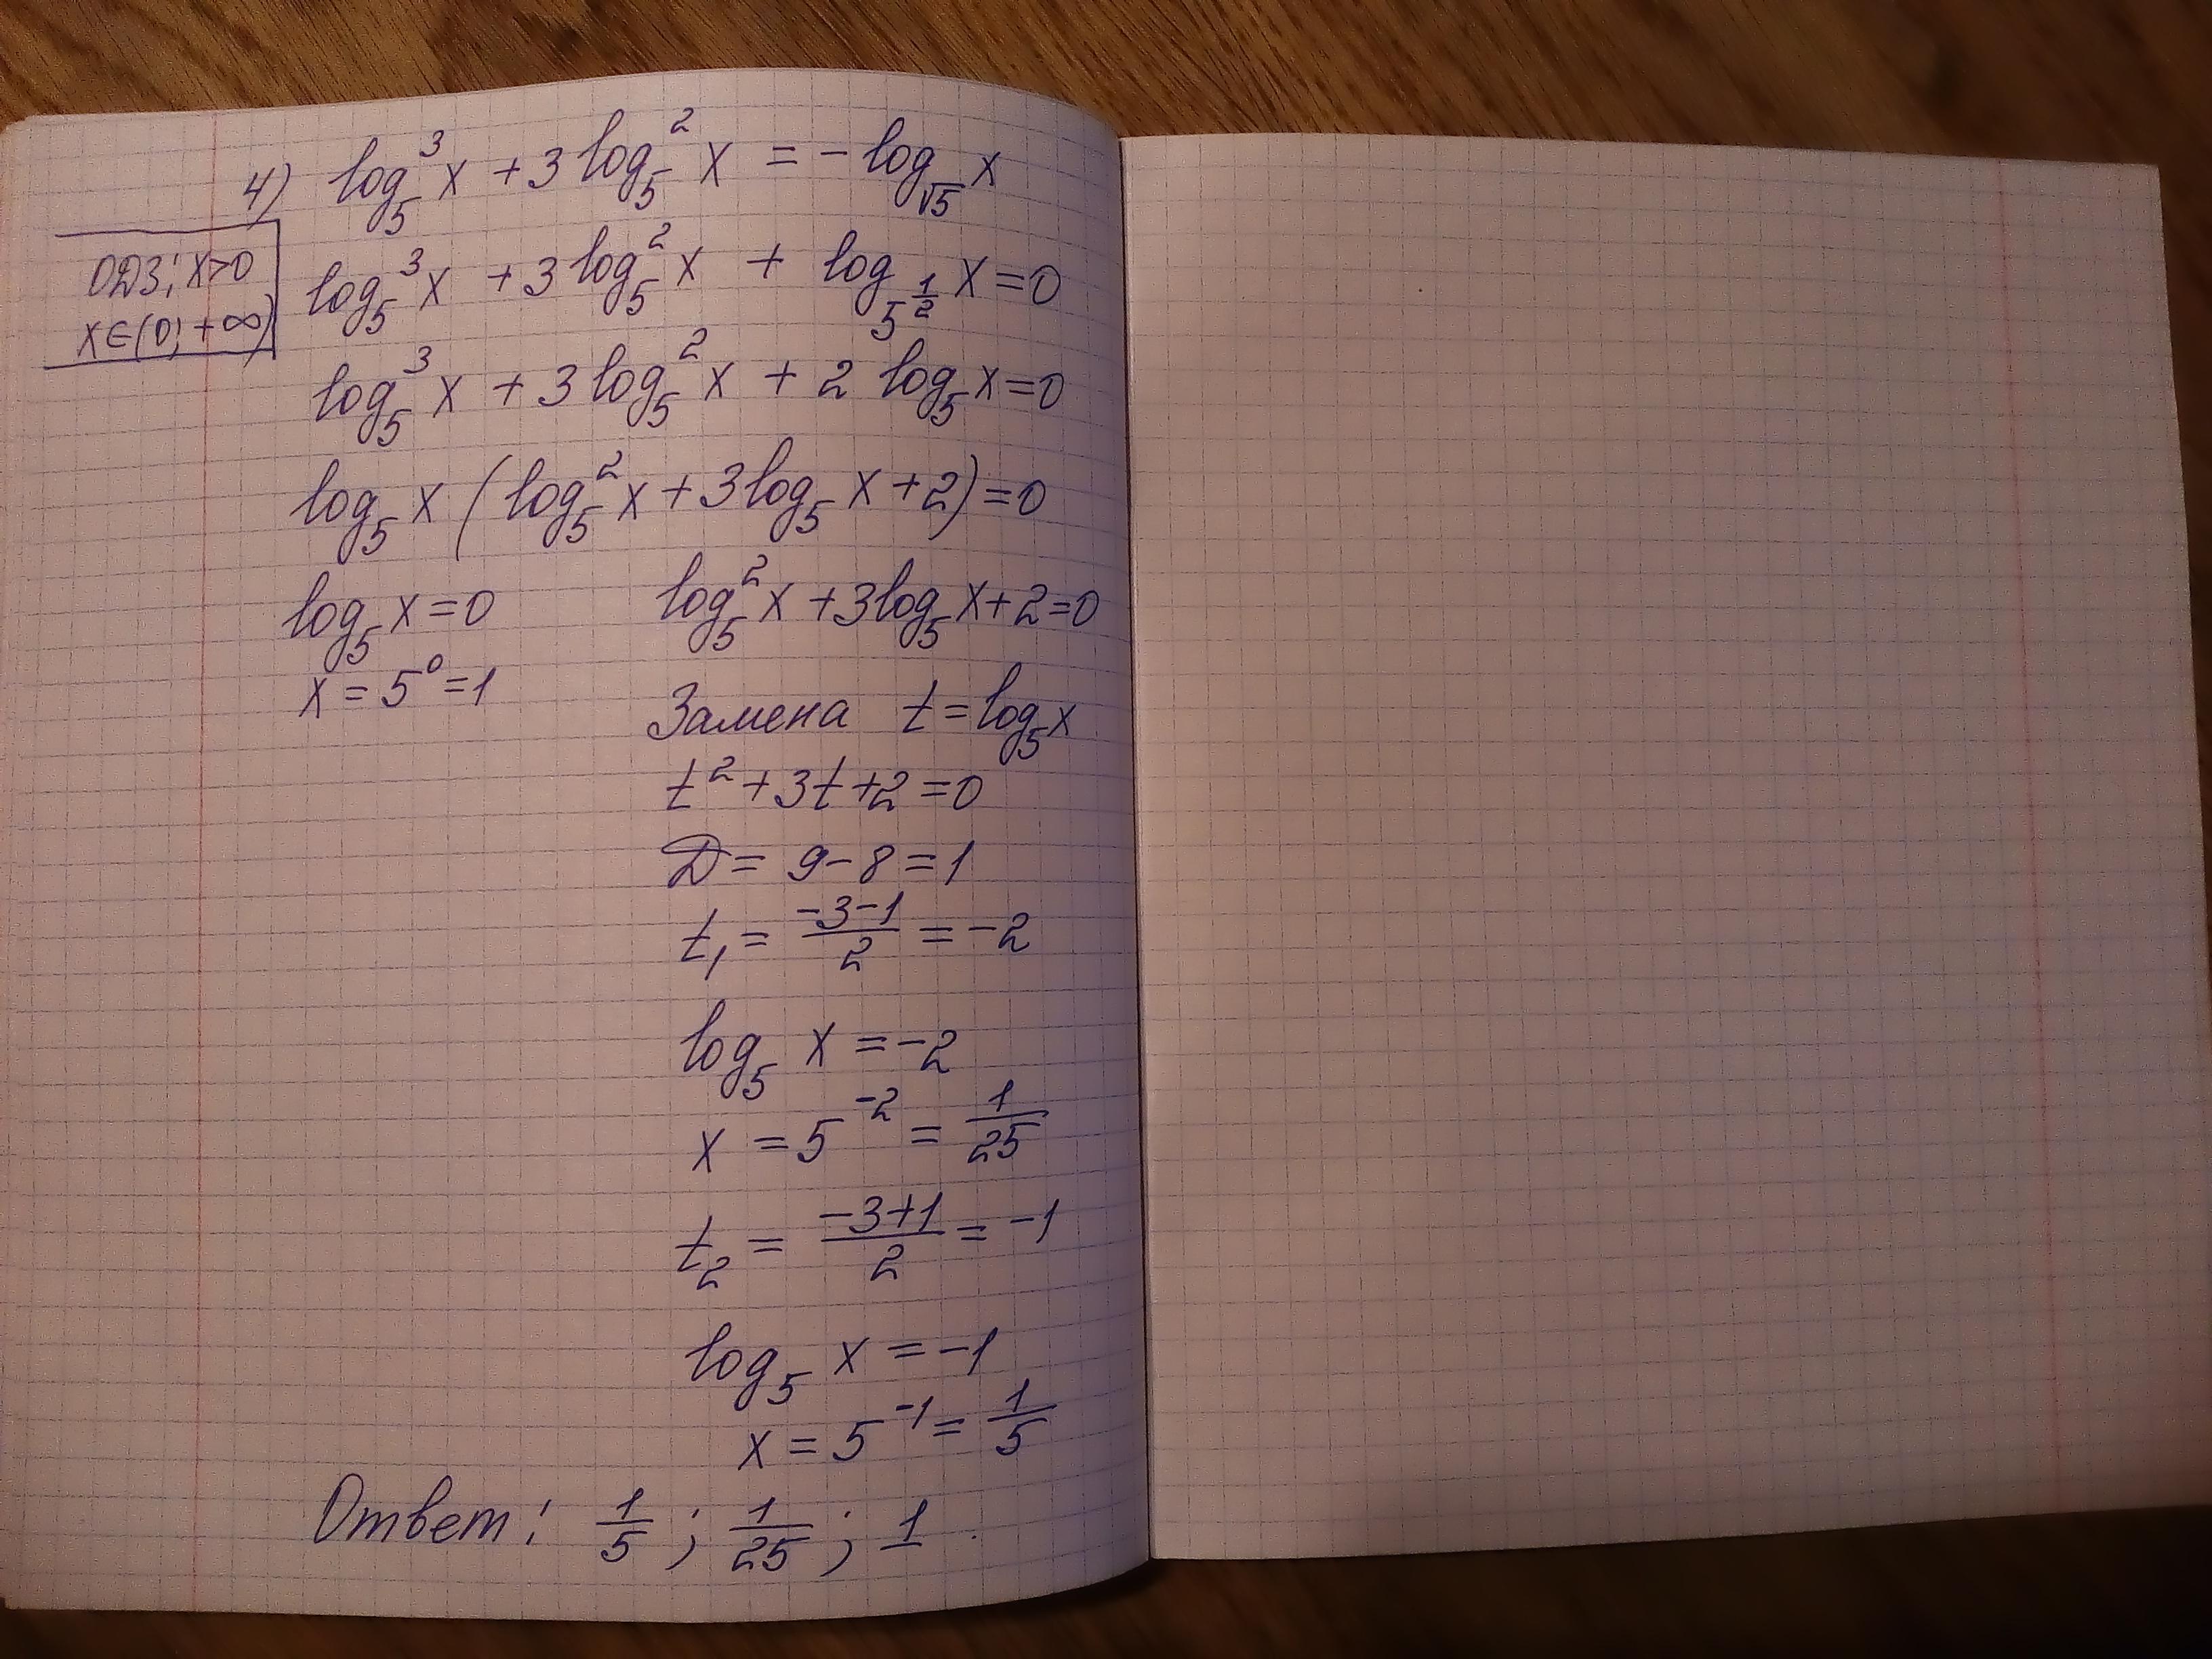 4) log₅³x + 3log₅²x = -log_√5 x
ОДЗ: x>0
x∈(0; +∞)
log₅³x + 3log₅²x + log_5^(1/2) x = 0
log₅³x + 3log₅²x + 2 log₅x = 0
log₅x (log₅²x + 3log₅x + 2) = 0
log₅x = 0
x = 5⁰ = 1
log₅²x + 3log₅x + 2 = 0
Замена t = log₅x
t² + 3t + 2 = 0
Д = 9 - 8 = 1
t₁ = (-3-1)/2 = -2
log₅ x = -2
x = 5⁻² = 1/25
t₂ = (-3+1)/2 = -1
log₅ x = -1
x = 5⁻¹ = 1/5
Ответ: 1/5 ; 1/25 ; 1.